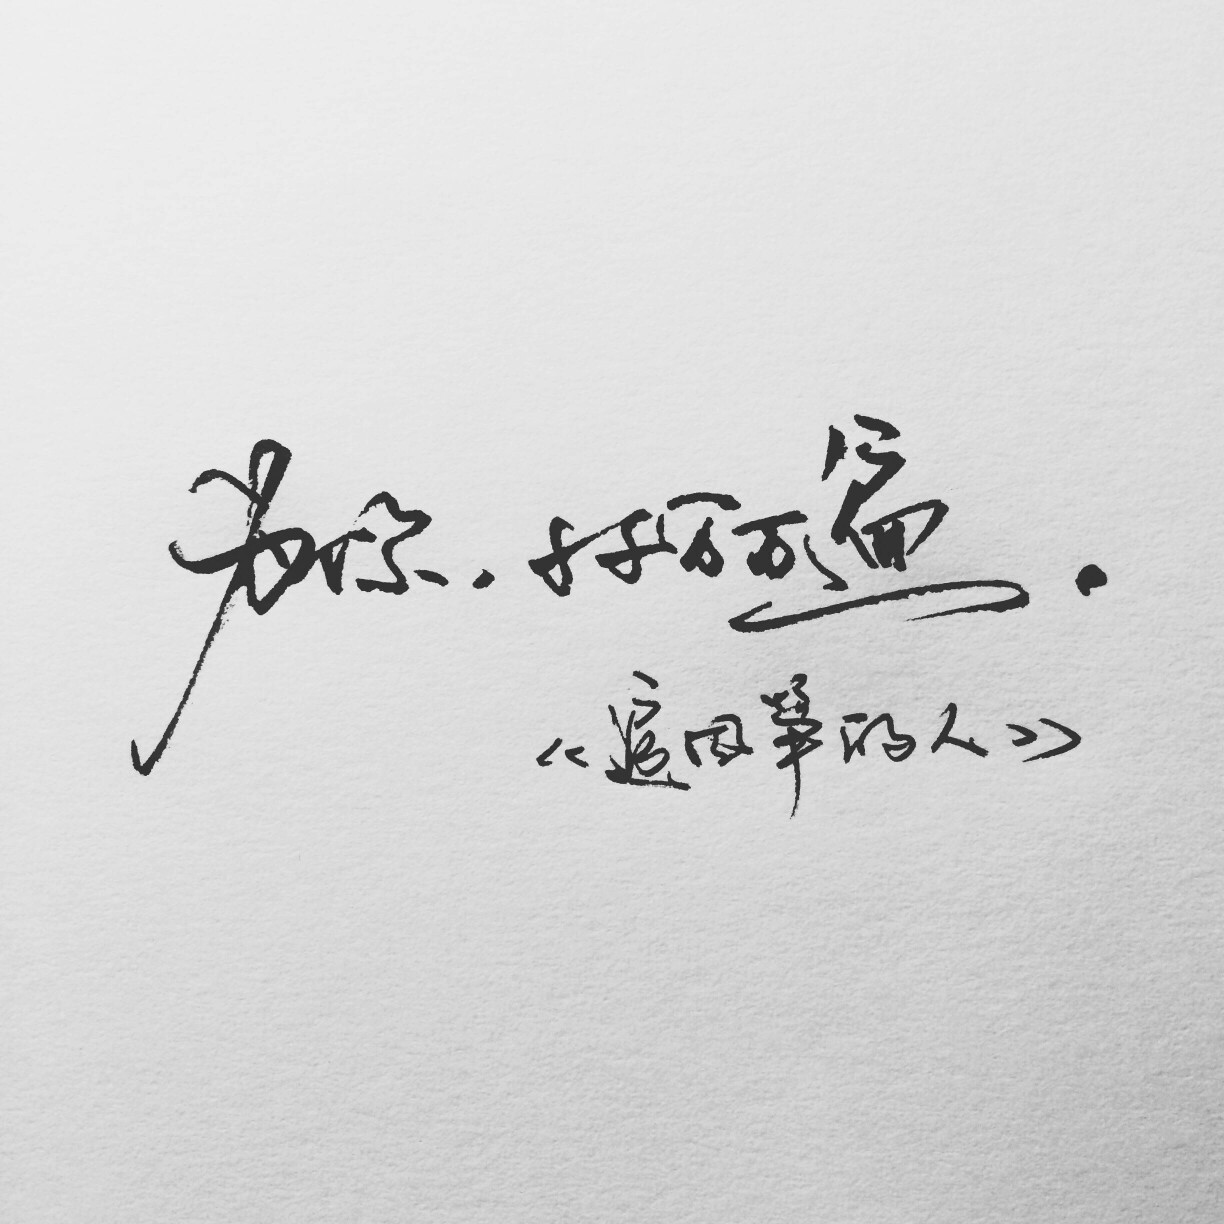 为你.千千万万遍.
《追风筝的人》